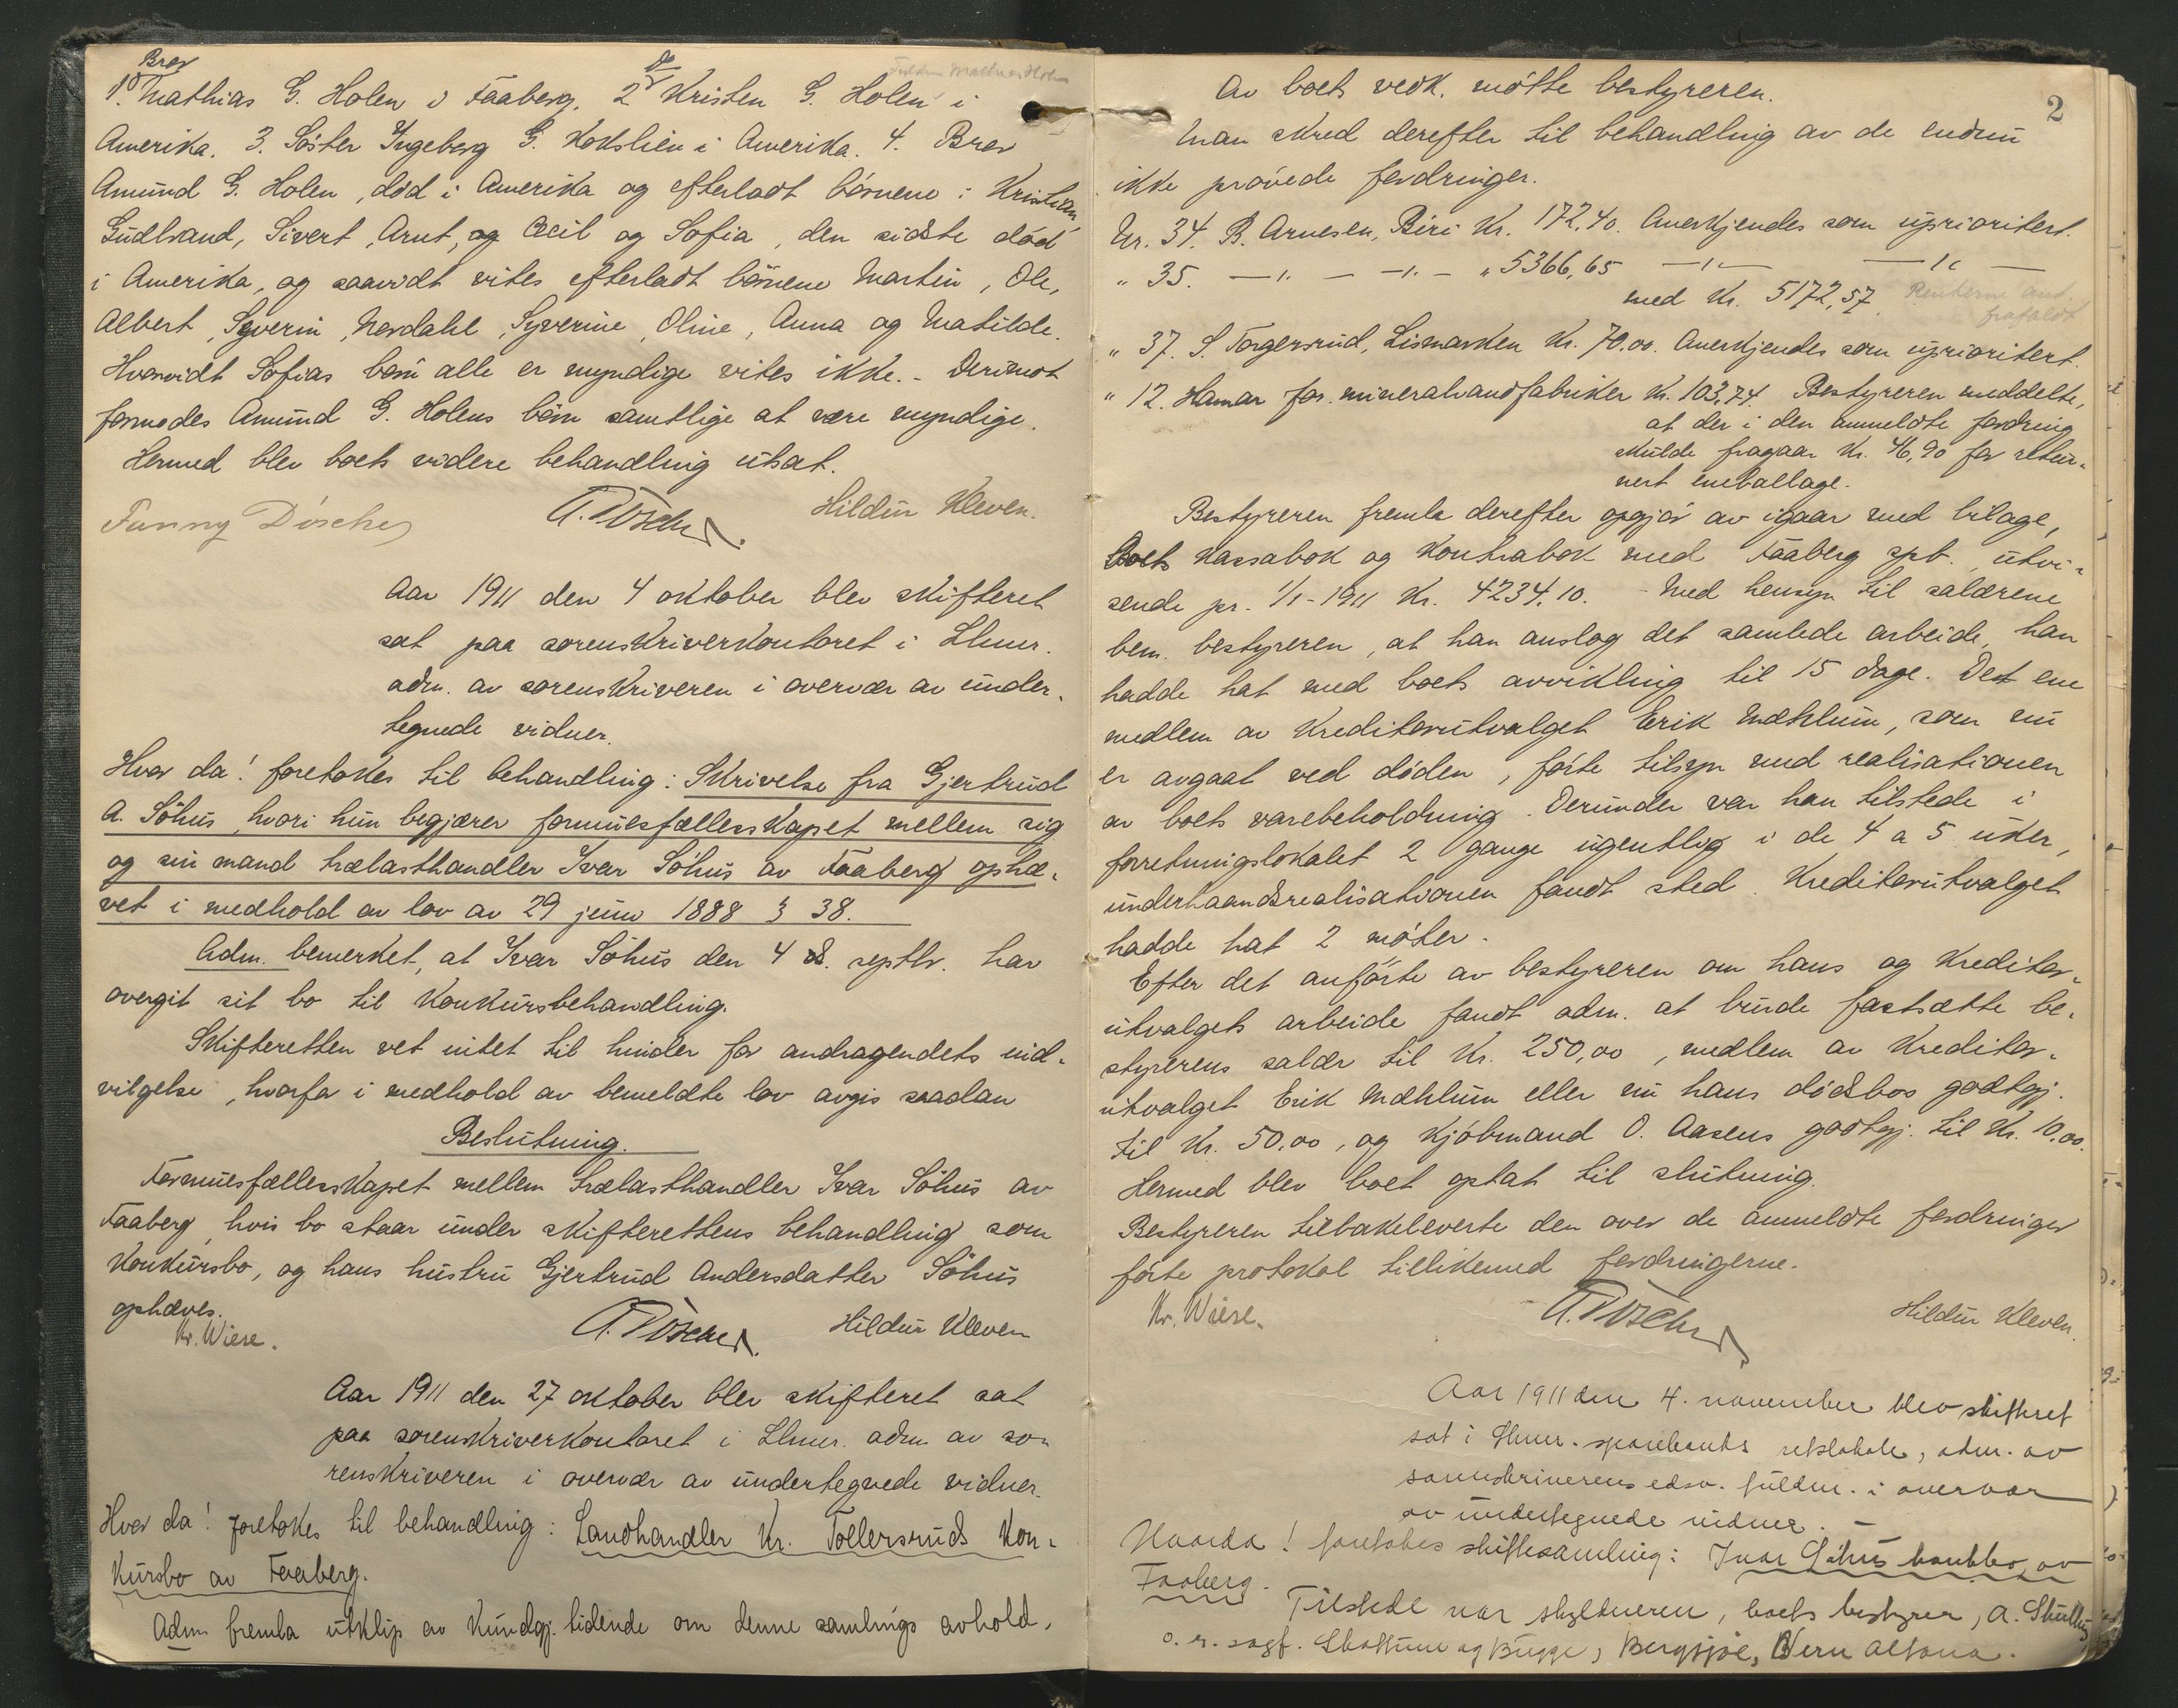 Bror do
1. Mathias G. Holen i Faaberg. 2 Kristen G. Holen i
Amerika. 3. Søster Ingeberg G. Kokslien i Amerika. 4. Bror
Amund G. Holen, død i Amerika og efterladt børnene: Kristian,
Gudbrand, Sivert, Arnt, og Cecil og Sofia, den sidste død
i Amerika, og saavidt vites efterladt børnene Martin, Ole,
Albert, Syverin, Nordahl, Syverine, Oline, Anna og Matilde.
Hvorvidt Sofias børn alle er myndige vites ikke. - Derimot
formodes Amund G. Holens børn samtlige at være myndige.
Hermed blev boets videre behandling utsat.
Fanny Dösche A. Dösche Hildur Kleven.
Aar 1911 den 4 oktober blev skifteret
sat paa sorenskriverkontoret i Lhmr.
adm. av sorenskriveren i overvær av under-
tegnede vidner.
Hvor da! foretokes til behandling: Skrivelse fra Gjertrud
A. Söhus, hvori hun begjærer formuesfællesskapet mellem sig
og sin mand trælasthandler Ivar Söhus av Faaberg ophæ-
vet i medhold av lov av 29 juni 1888 § 38.
Adm. bemerket, at Ivar Söhus den 4 d. septbr. har
overgit sit bo til konkursbehandling.
Skifteretten vet intet til hinder for andragendets ind-
vilgelse, hvorfor i medhold av bemeldte lov avgis saadan
Beslutning.
Formuesfællesskapet mellem trælasthandler Ivar Söhus av
Faaberg, hvis bo staar under skifterettens behandling som
konkursbo, og hans hustru Gjertrud Andersdatter Söhus
ophæves.
Kr. Wiese. A. Dösche Hildur Kleven
Aar 1911 den 27 oktober blev skifteret sat
paa sorenskriverkontoret i Lhmr. adm. av so-
renskriveren i overvær av undertegnede vidner.
Hvor da! foretokes til behandling: Landhandler Kr. Tollersruds kon-
kursbo av Faaberg.
Adm. fremla utklip av kundgj. tidende om denne samlings avhold.
2
Av boets vedk. møtte bestyreren.
Man skred derefter til behandling av de endnu
ikke prøvede fordringer.
Nr. 34. B. Arnesen, Biri Kr. 172,40. Anerkjendes som uprioritert.
" 35. —"— —"— " 5366,65 —"— —"—
med Kr. 5172,57. Renterne
frafaldt
" 37. S. Torgersrud, Lismarken Kr. 70.00. Anerkjendes som uprioritert.
" 12. Hamar for. mineralvandfabriker Kr. 103,74. Bestyreren meddelte,
at der i den anmeldte fordring
skulde fragaar Kr. 46,90 for retur-
nert emballage.
Bestyreren fremla derefter opgjør av igaar med bilage,
boets kassabok og kontrabok med Faaberg spb., utvi-
sende pr. 1/1-1911 Kr. 4234.10. - Med hensyn til salærene
bem. bestyreren, at han anslog det samlede arbeide, han
hadde hat med boets avvikling til 15 dage. Det ene
medlem av kreditorutvalget Erik Mæhlum, som nu
er avgaat ved døden, førte tilsyn med realisationen
av boets varebeholdning. Derunder var han tilstede i
forretningslokalet 2 gange ugentlig i de 4 a 5 uker,
underhaandsrealisationen fandt sted. Kreditorutvalget
hadde hat 2 møter.
Efter det anførte av bestyreren om hans og kreditor-
utvalgets arbeide fandt adm. at burde fastsætte be-
styrerens salær til Kr. 250,00, medlem av kreditor-
utvalget Erik Mæhlum eller nu hans dødsbos godtgj.
til Kr. 50.00, og kjøbmand O. Aasens godtgj. til Kr. 10.00.
Hermed blev boet optat til slutning.
Bestyreren tilbakeleverte den over de anmeldte fordringer
førte protokol tillikemed fordringerne.
Kr. Wiese. A. Dösche Hildur Kleven.
Aar 1911 den 4. november blev skifteret
sat i Lhmr. sparebanks retslokale, adm. av
sorenskriverens edsv. fuldm. i overvær
av undertegnede vidner.
Hvorda! foretokes skiftesamling: Ivar Söhus konkbo, av
Faaberg.
Tilstede var skyldneren, boets bestyrer,
o.r. sagf. og Bugge,